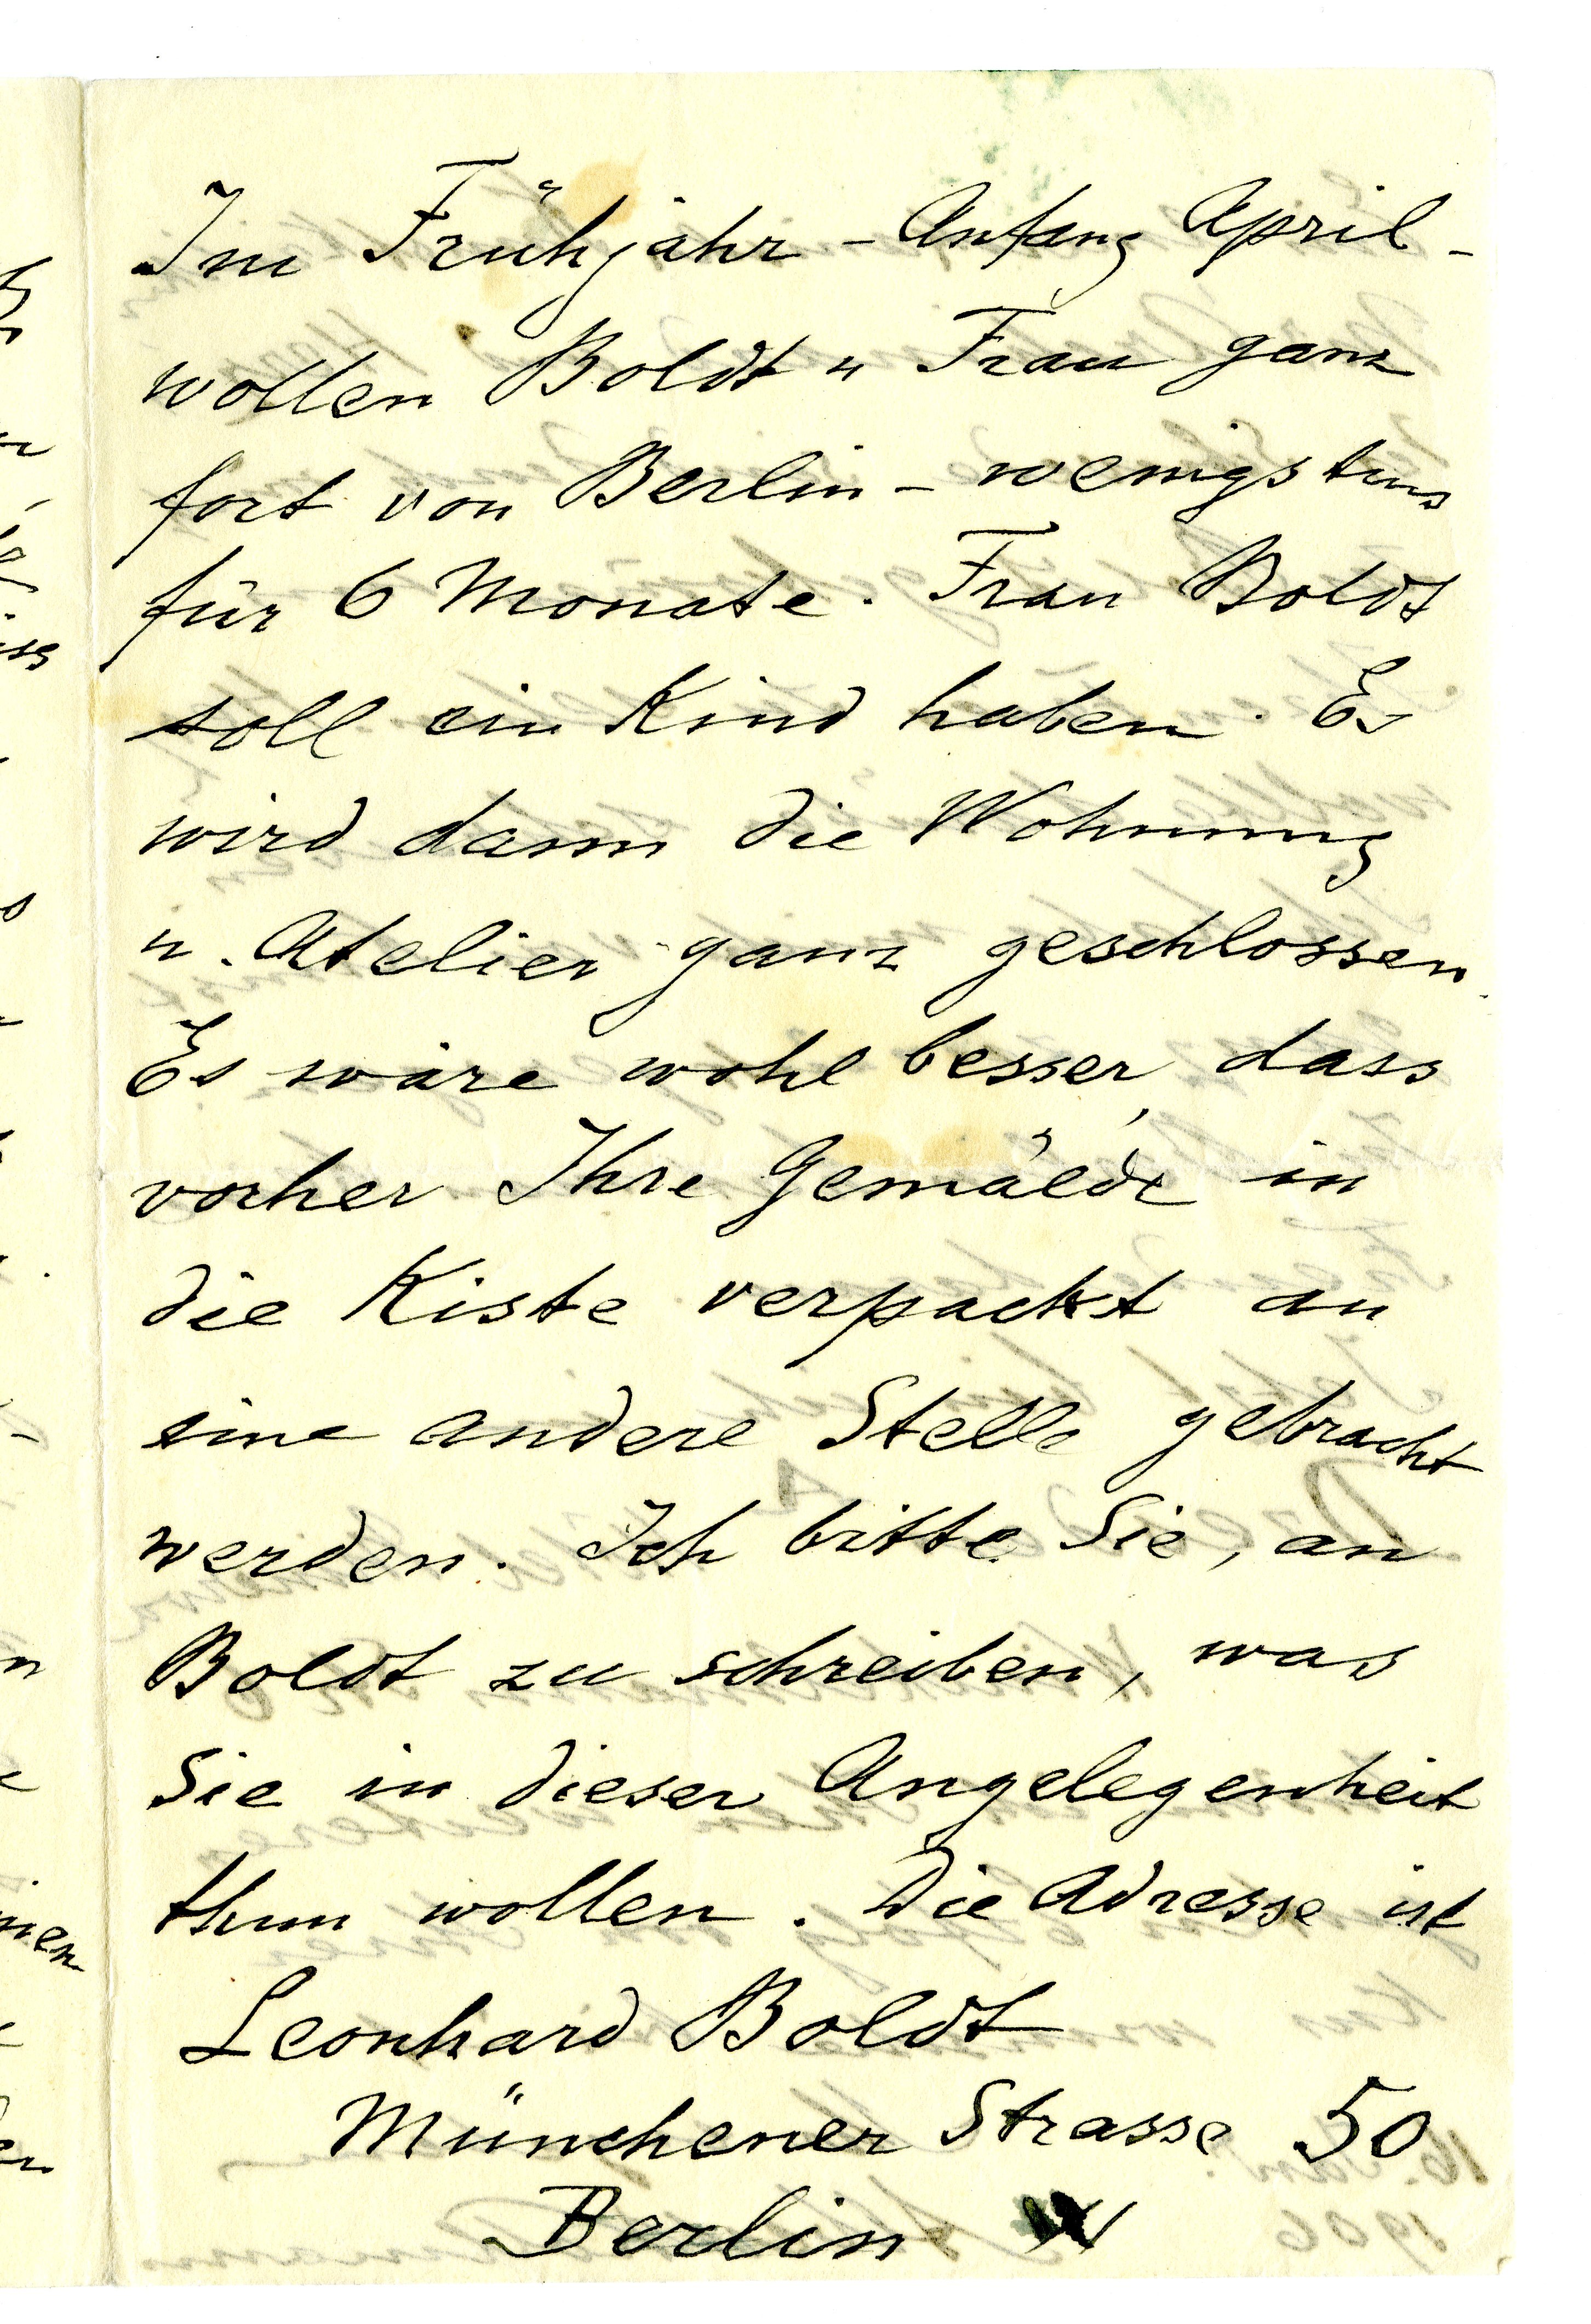 Im Frühjahr - Anfang April -
wollen Boldt u Frau ganz
fort von Berlin - wenigstens
für 6 Monate. Frau Boldt
soll ein Kind haben. Es
wird dann die Wohnung
u. Atelier ganz geschlossen.
Es wäre wohl besser, dass
vorher Ihre Gemälde in
die Kiste verpackt an
eine andere Stelle gebracht
werden. Ich bitte Sie, an
Boldt zu schreiben, was
Sie in dieser Angelegenheit
thun wollen. Die Adresse ist
Leonhard Boldt
Münchener Strasse 50
Berlin W